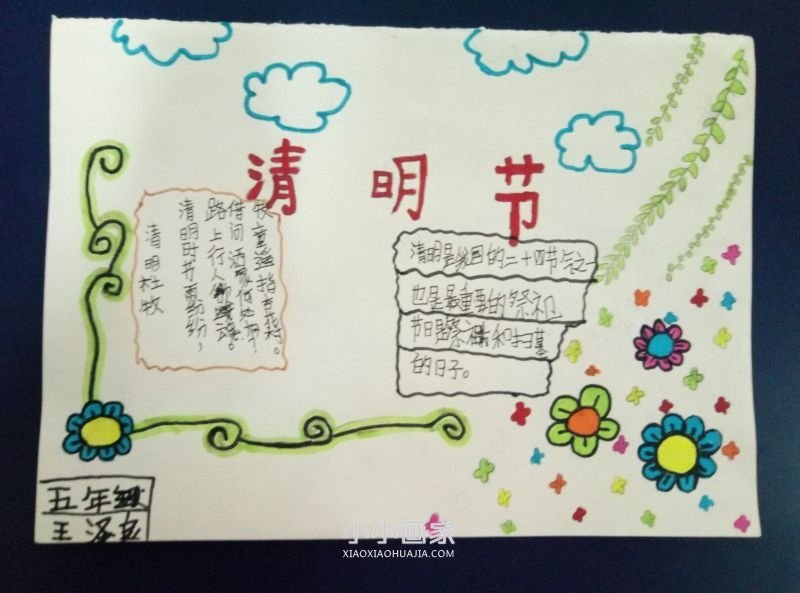 清明节
清明杜牧
清明时节雨纷纷，
路上行人欲断魂。
借问酒家何处有？
牧童遥指杏花村。
清明是我国的二十四节气之一
也是最重要的祭祀
节日是祭祖和扫墓
的日子。
五年级
王洛
小小画家
XIAOXIAOHUAJIA.COM